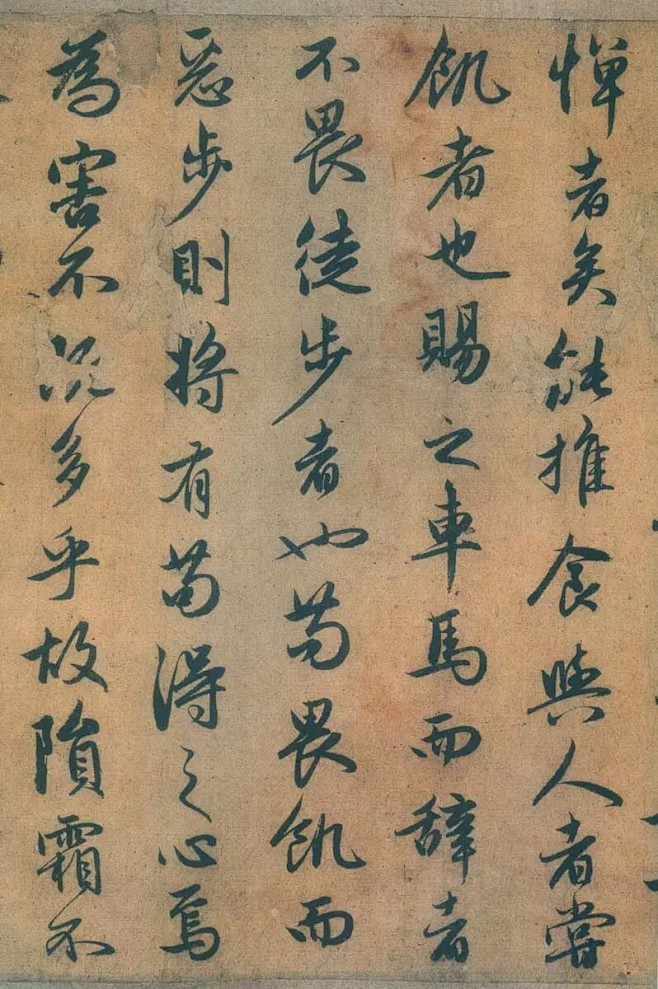 憚者矣能推食與人者嘗
飢者也賜之車馬而辞者
不畏徒步者也苟畏飢而
惡步則將有苟得之心焉
為害不既多乎故隕霜不